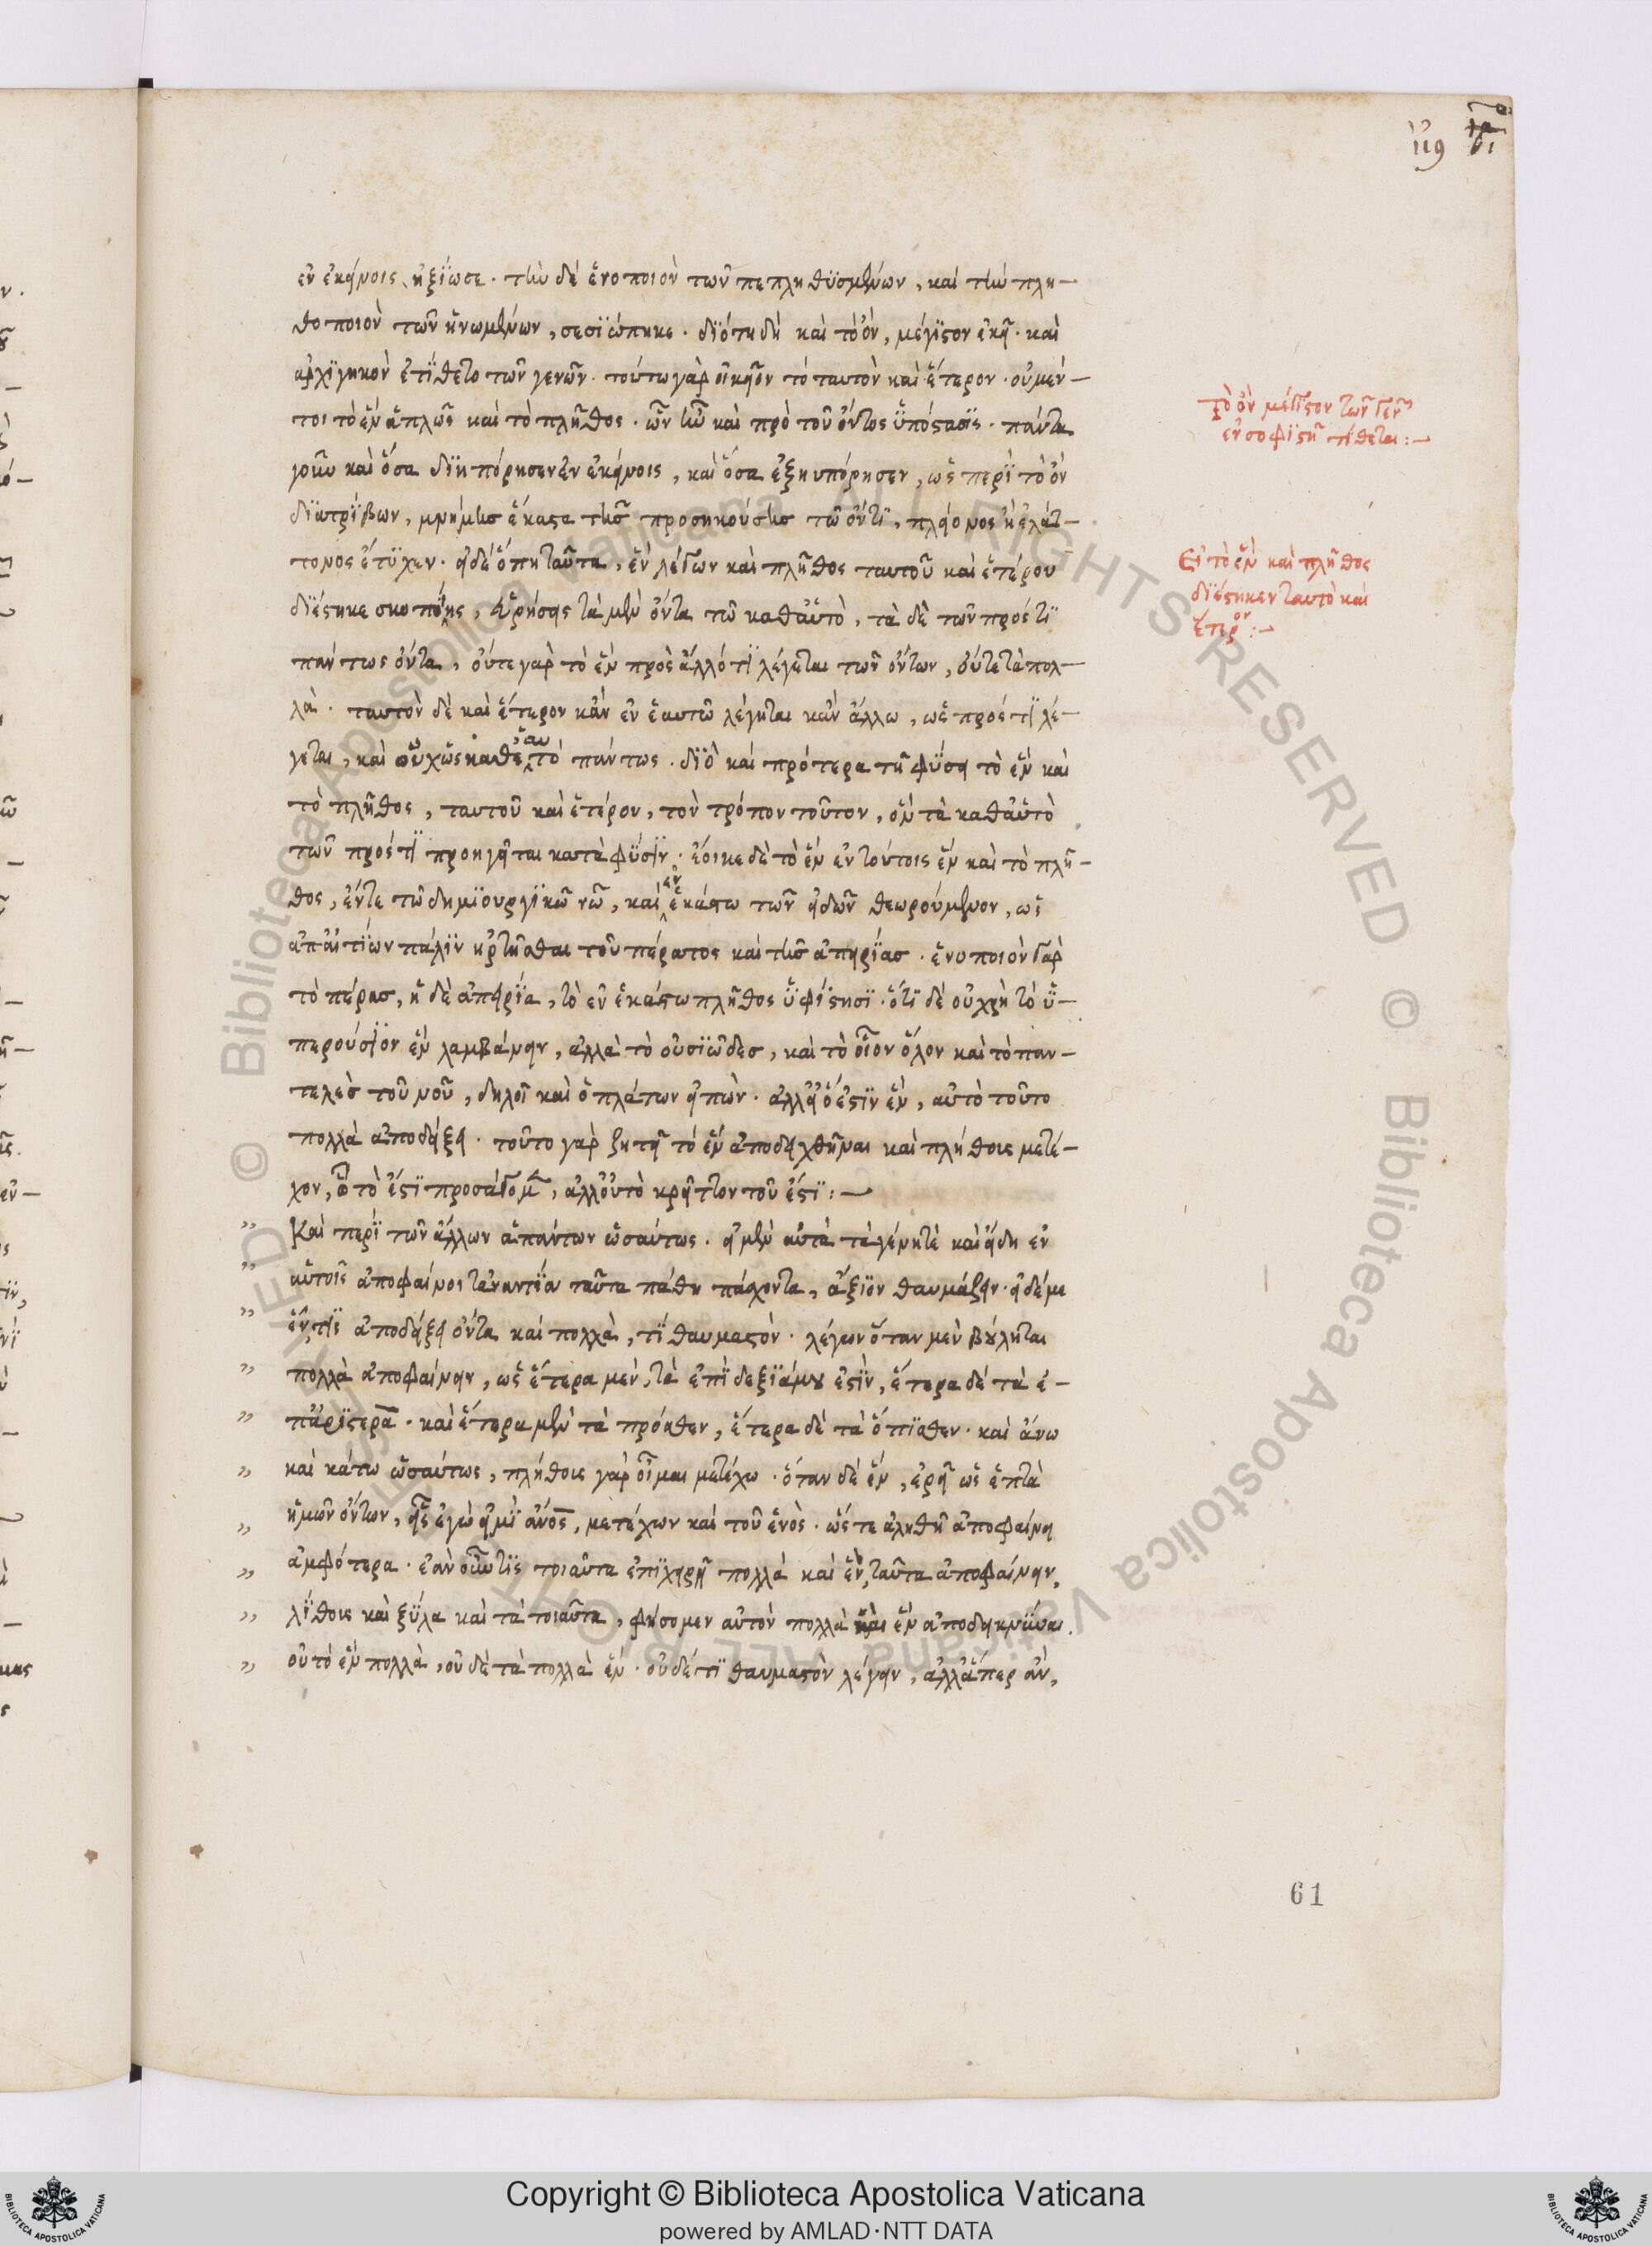 119
ἐν ἐκείνοις ἠξίωσε. τὴν δὲ ἑνοποιὸν τῶν πεπληθϋσμένων, καὶ τὴν πλη-
θοποιὸν τῶν ἡνωμένων, σεσϊώπηκε. δϊότι δὴ καὶ τὸ ὂν, μέγϊστον ἐκεῖ. καὶ
ἀρχϊγικὸν ἐτΐθετο τῶν γενῶν. τούτω γὰρ οἰκεῖον τὸ ταυτὸν καὶ ἕτερον. οὐ μέν-
τοι τὸ ἓν ἁπλῶς καὶ τὸ πλῆθος. ὧν ἦν καὶ πρὸ τοῦ ὄντος ὑπόστασϊς. πάντα
γοῦν καὶ ὅσα δϊηπόρησεν ἐν ἐκείνοις, καὶ ὅσα ἐξηυπόρησεν, ὡς περΐ τὸ ὂν
δϊατρΐβων, μνήμης ἕκαστα τῆς προσηκούσης τῶ ὄντϊ, πλείονος ἢ ἐλάτ-
τονος ἔτϋχεν. εἰ δέ ὅπη ταῦτα, ἓν λέγων καὶ πλῆθος ταυτοῦ καὶ ἑτέρου
δϊέστηκε σκοποίης, εὑρήσεις τὰ μὲν ὄντα τῶ καθ᾽ αὑτὸ, τὰ δὲ τῶν πρός τϊ
πάντως ὄντα, οὔτε γὰρ τὸ ἓν πρὸς ἄλλό τϊ λέγεται τῶν ὄντων, οὔτε τὰ πολ-
λὰ. ταυτὸν δὲ καὶ ἕτερον κἂν ἐν ἑαυτῶ λέγηται κἂν ἄλλω, ὡς πρός τϊ λέ-
γεται, καὶ οὐχ ὡς καθ᾽ ἑαυτό πάντως. δϊὸ καὶ πρότερα τῆ φύσει τὸ ἓν καὶ
τὸ πλῆθος, ταυτοῦ καὶ ἑτέρου, τὸν τρόπον τοῦτον, ὃν τὰ καθ᾽ αὑτὸ
τῶν πρός τϊ προηγεῖται κατὰ φύσϊν. ἔοικε δὲ τὸ ἓν ἐν τούτοις ἓν καὶ τὸ πλῆ-
θος, ἔν τε τῶ δημϊουργϊκῶ νῶ, καὶ ἐν ἑκάστω τῶν εἰδῶν θεωρούμενον, ὡς
ἀπ᾽ αἰτΐων πάλϊν ἠρτῆσθαι τοῦ πέρατος καὶ τῆς ἀπειρΐας. ἑνοποιὸν γὰρ
τὸ πέρας, ἡ δὲ ἀπειρΐα, τὸ ἐν ἑκάστω πλῆθος ὑφΐστησϊ. ὅτϊ δὲ οὐ χρὴ τὸ ὑ-
περούσϊον ἓν λαμβάνειν, ἀλλὰ τὸ οὐσϊῶδες, καὶ τὸ οἷον ὅλον καὶ τὸ παν-
τελὲς τοῦ νοῦ, δηλοῖ καὶ ὁ πλάτων εἰπὼν. ἀλλ᾽ εἰ ὅ ἐστϊν ἓν, αὐτὸ τοῦτο
πολλὰ ἀποδείξει. τοῦτο γὰρ ζητεῖ τὸ ἓν ἀποδειχθῆναι καὶ πλήθους μετέ-
χον, ὧ τὸ ἔστϊ προσάγομεν, ἀλλ᾽ οὐ τὸ κρεῖττον τοῦ ἔστϊ:—
Καὶ περΐ τῶν ἄλλων ἁπάντων ὡσαύτως. εἰ μὲν αὐτὰ τὰ γένη τὲ καὶ εἴδη ἐν
αὑτοῖς ἀποφαίνοι τἀναντΐα ταῦτα πάθη πάσχοντα, ἄξϊον θαυμάζειν. εἰ δέ με
ἕν, τϊς ἀποδείξει ὄντα καὶ πολλὰ, τΐ θαυμαστὸν. λέγων ὅταν μὲν βούληται
πολλὰ ἀποφαίνειν, ὡς ἕτερα μέν, τὰ ἐπΐ δεξϊά μου ἐστϊν, ἕτερα δέ τὰ ἐ-
π᾽ ἀρϊστερὰ. καὶ ἕτερα μὲν τὰ πρόσθεν, ἕτερα δὲ τὰ ὄπϊσθεν. καὶ ἄνω
καὶ κάτω ὡσαύτως, πλήθους γὰρ οἶμαι μετέχω. ὅταν δὲ ἓν, ἐρεῖ ὡς ἑπτὰ
ἡμῶν ὄντων, εἷς ἐγὼ εἰμϊ ἄνος, μετέχων καὶ τοῦ ἑνὸς. ὥστε ἀληθῆ ἀποφαίνει
ἀμφότερα. ἐὰν οὖν τϊς τοιαῦτα ἐπϊχειρῆ πολλὰ καὶ ἓν, ταῦτα ἀποφαίνειν,
λΐθους καὶ ξύλα καὶ τὰ τοιαῦτα, φήσομεν αὐτὸν πολλὰ καὶ ἓν ἀποδεικνϋναι.
οὐ τὸ ἓν πολλὰ, οὐ δὲ τὰ πολλὰ ἓν. οὐδέ τϊ θαυμαστὸν λέγειν, ἀλλ᾽ ἅπερ ἂν,
Τὸ ὂν μέγϊστον τῶν γενῶν
ἐν σοφϊστῆ τίθεται:—
Εἰ τὸ ἓν καὶ πλῆθος
δϊέστηκεν ταυτὸ καὶ
ἕτερον:—
61
© Biblioteca Apostolica Vaticana ALL RIGHTS RESERVED
© Biblioteca Apostolica Vaticana ALL RIGHTS RESERVED
Copyright © Biblioteca Apostolica Vaticana
powered by AMLAD·NTT DATA